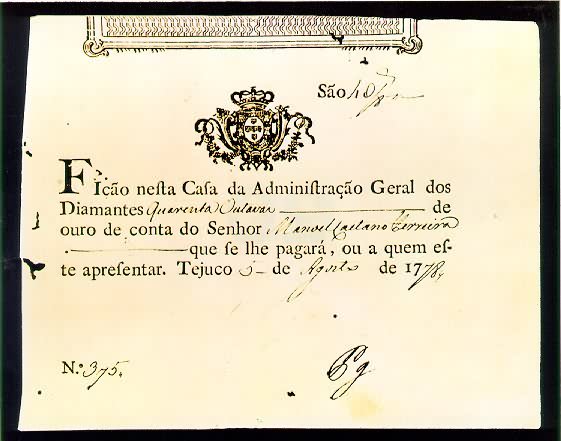 São 40/8.as
Ficão neſta Caſa da Adminiſtração Geral dos
Diamantes Quarenta Outavas de
ouro de conta do Senhor Manoel Caetano Ferreira
que ſe lhe pagará, ou a quem eſ-
te apreſentar. Tejuco 5 de Agosto de 1778,
N.º 375.
Pg